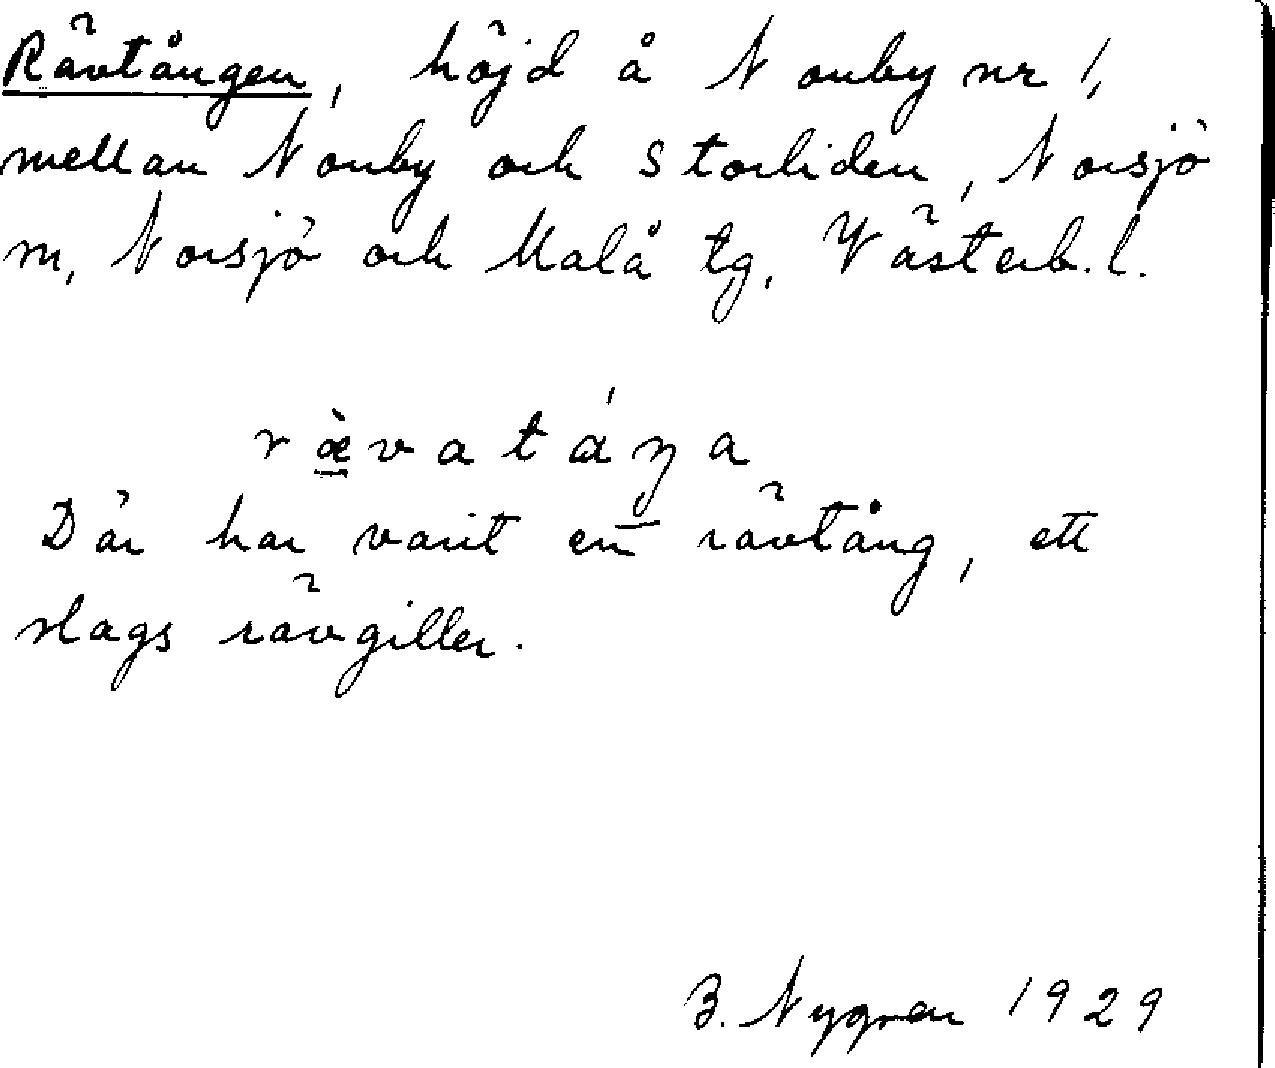 Rävtången, höjd å Norrby nr 1,
mellan Norrby och Storliden, Norsjö
m, Norsjö och Malå tg, Västerb. l.
ræ̀vatáŋa
Där har varit en rävtång, ett
slags rävgiller.
B. Nygren 1929